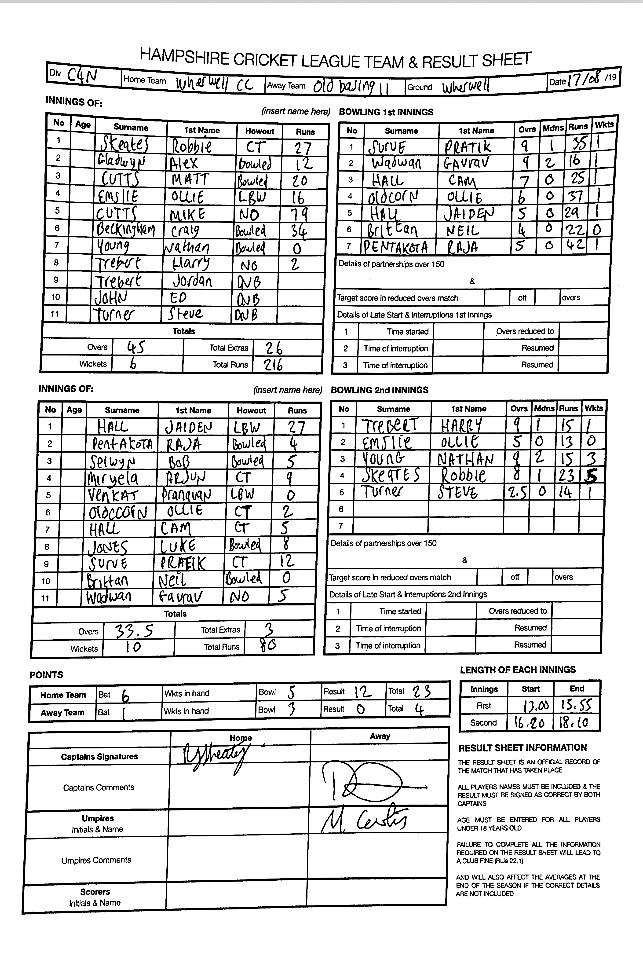 HAMPSHIRE CRICKET LEAGUE TEAM & RESULT SHEET
Div C4N Home Team Wherwell CC Away Team Old basing 11 Ground Wherwell Date 17/08/19
INNINGS OF: (insert name here) BOWLING 1st INNINGS
No Age Surname 1st Name Howout Runs
1 Skeates Robbie CT 27
2 Gladwyn Alex Bowled 12
3 CUTTS MATT Bowled 20
4 EMSLIE OLLIE LBW 16
5 CUTTS MIKE NO 79
6 Beckingham Craig Bowled 34
7 Young Nathan Bowled 0
8 Trebert Harry NO 2
9 Trebert Jordan DNB
10 JOHN ED DNB
11 Turner Steve DNB
Totals
Overs 45 Total Extras 26
Wickets 6 Total Runs 216
No Surname 1st Name Ovrs Mdns Runs Wkts
1 SURVE PRATIK 9 1 35 1
2 Wadwan GAURAV 9 2 16 1
3 HALL CAM 7 0 25
4 OLDCORN OLLIE 6 0 37 1
5 HALL JAIDEN 5 0 29 1
6 Brittan NEIL 4 0 22 0
7 PENTAKOTA RAJA 5 0 42 1
Details of partnerships over 150
&
Target score in reduced overs match off overs
Details of Late Start & Interruptions 1st Innings
1 Time started Overs reduced to
2 Time of interruption Resumed
3 Time of interruption Resumed
INNINGS OF: (insert name here) BOWLING 2nd INNINGS
No Age Surname 1st Name Howout Runs
1 HALL JAIDEN LBW 27
2 PentAKOTA RAJA Bowled 4
3 Selwyn BOB Bowled 5
4 Miryela ARJUN CT 9
5 VENKAT Pranavan LBW 0
6 OLDCORN OLLIE CT 2
7 HALL CAM CT 5
8 JONES LUKE Bowled 8
9 SURVE PRATIK CT 12
10 Brittan Neil Bowled 0
11 Wadwan Gaurav NO 5
Totals
Overs 33.5 Total Extras 3
Wickets 10 Total Runs 80
No Surname 1st Name Ovrs Mdns Runs Wkts
1 TREBERT HARRY 9 1 15 1
2 EMSLIE OLLIE 5 0 13 0
3 YOUNG NATHAN 9 2 15 3
4 SKEATES Robbie 8 1 23 5
5 Turner STEVE 2.5 0 14 1
6
7
Details of partnerships over 150
&
Target score in reduced overs match off overs
Details of Late Start & Interruptions 2nd Innings
1 Time started Overs reduced to
2 Time of interruption Resumed
3 Time of interruption Resumed
POINTS
Home Team Bat 6 Wkts in hand Bowl 5 Result 12 Total 23
Away Team Bat 1 Wkts in hand Bowl 3 Result 0 Total 4
LENGTH OF EACH INNINGS
Innings Start End
First 13.00 15.55
Second 16.20 18.10
Home Away
Captains Signatures
Captains Comments
Umpires
Initials & Name M Curtis
Umpires Comments
Scorers
Initials & Name
RESULT SHEET INFORMATION
THE RESULT SHEET IS AN OFFICIAL RECORD OF
THE MATCH THAT HAS TAKEN PLACE
ALL PLAYERS NAMES MUST BE INCLUDED & THE
RESULT MUST BE SIGNED AS CORRECT BY BOTH
CAPTAINS
AGE MUST BE ENTERED FOR ALL PLAYERS
UNDER 18 YEARS OLD
FAILURE TO COMPLETE ALL THE INFORMATION
REQUIRED ON THE RESULT SHEET WILL LEAD TO
A CLUB FINE (Rule 22.1)
AND WILL ALSO AFFECT THE AVERAGES AT THE
END OF THE SEASON IF THE CORRECT DETAILS
ARE NOT INCLUDED